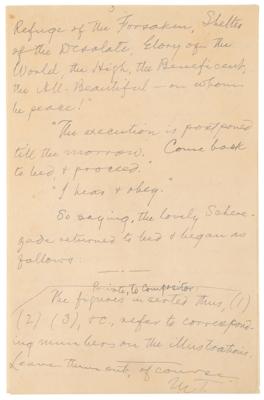 3
Refuge of the Forsaken, Shelter
of the Desolate, Glory of the
World, the High, the Beneficent,
the All-Beautiful — on whom
be peace!"
"The execution is postponed
till the morrow. Come back
to bed & proceed."
"I hear & obey."
So saying, the lovely Schere-
zade returned to bed & began as
follows:
Private, to Compositor.
The figures inserted thus, (1)
(2) (3), &c., refer to correspond-
ing numbers on the illustrations.
Leave them out, of course.
M.T.